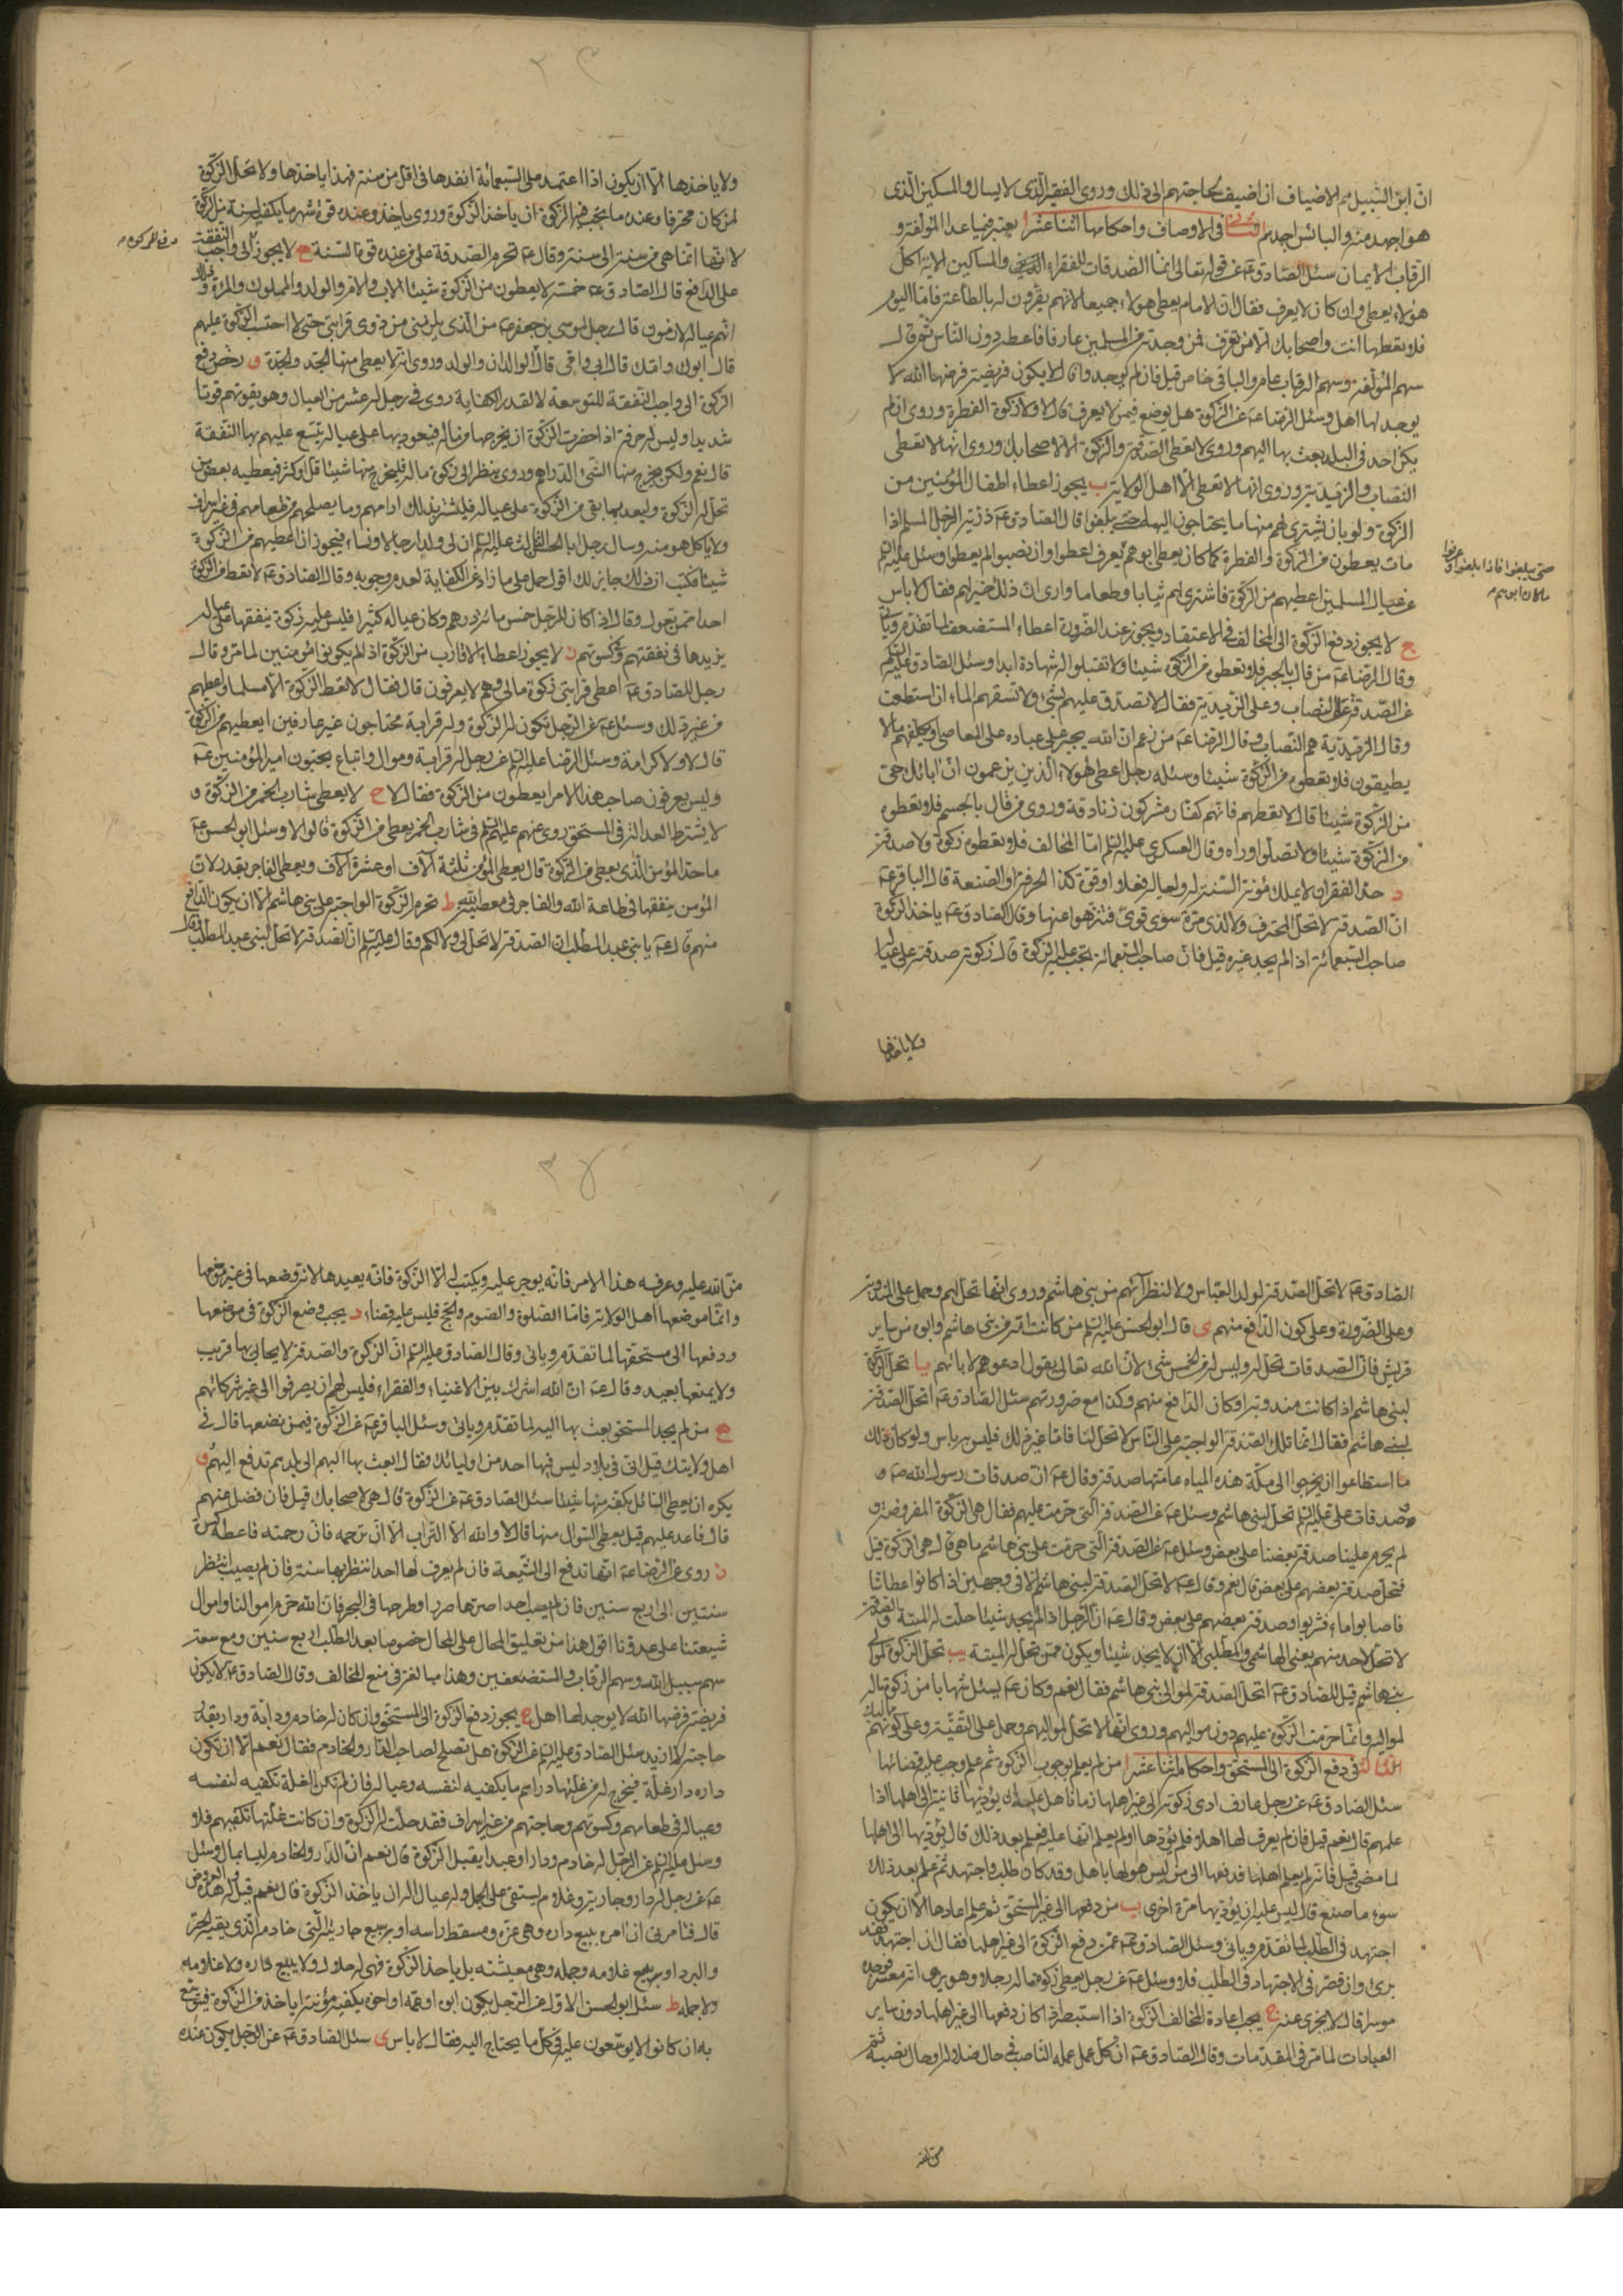 انّ ابن السّبيل هم الاضياف ان اضيف لحاجتهم الى ذلك وروى الفقير الّذى لا يسال والمسكين الّذى
هو اجهد منه والبائس اجهدهم الثانى فى الاوصاف واحكامها اثنا عشر ا يعتبر فيما عدا المؤلفة و
الرّقاب الايمان سئل الصّادق عـ عن قوله تعالى انّما الصّدقات للفقراء والمساكين الاية اكلّ
هؤلاء يعطى وان كان لا يعرف فقال انّ الامام يعطى هؤلاء جميعا لانّهم يقرّون له بالطاعة فامّا اليوم
فلا تعطها انت واصحابك الّا من تعرف فمن وجدته من المسلمين عارفا فاعطه دون النّاس ثم قال
سهم المؤلّفة وسهم الرقاب عام والباقى خاص قيل فان لم يوجدوا قال لا يكون فريضة فرضها الله لا
يوجد لها اهل وسئل الرّضا عـ عن الزّكوة هل يوضع فيمن لا يعرف قال لا ولا زكوة الفطرة وروى ان لم
يكن احد فى البلد يبعث بها اليهم وروى لا تعطى الصّدقة والزكوة الّا لاصحابك وروى انّها لا تعطى
النصّاب والزيديّة وروى انّها لا تعطى الّا اهل الولاية ب يجوز اعطاء اطفال المؤمنين من
الزكوة ولو بان يشترى لهم منها ما يحتاجون اليه حتى يبلغوا قال الصّادق عـ ذرّية الرّجل المسلم اذا
مات يعطون من الزكوة والفطرة كما كان يعطى ابوهم يعرف اعطوا وان نصبوا لم يعطوا وسئل عليه السلم
حتى يبلغوا فاذا بلغوا وعرفوا
ما كان ابوهم
عن عيال المسلمين اعطيهم من الزكوة فاشترى لهم ثيابا وطعاما وارى انّ ذلك خير لهم فقال لا باس
ج لا يجوز دفع الزّكوة الى المخالف فى الاعتقاد ويجوز عند الضّرورة اعطاء المستضعف لما تقدّم وياتى
وقال الرّضا عـ من قال بالجبر فلا تعطوه من الزكوة شيئا ولا تقبلوا له شهادة ابدا وسئل الصّادق عليه السلم
عن الصّدقة على النصّاب وعلى الزّيديّة فقال لا تصدّق عليهم بشئ ولا تسقهم الماء ان استطعت
وقال الزيديّة هم النصّاب وقال الرّضا عـ من زعم انّ الله يجبر عباده على المعاصى او يكلّفهم ما لا
يطيقون فلا تعطوه من الزكوة شيئا وسئله رجل اعطى هؤلاء الّذين يزعمون انّ اباك حىّ
من الزكوة شيئا قال لا تعطهم فانّهم كفّار مشركون زنادقة وروى من قال بالجسم فلا تعطوه
من الزكوة شيئا ولا تصلّوا وراه وقال العسكرى عليه السلم امّا المخالف فلا تعطوه زكوة ولا صدقة
د حدّ الفقر ان لا يملك مؤنة السّنة له ولعياله فعلا او قوّة كذا الحرفة والصنعة قال الباقر عـ
انّ الصّدقة لا تحلّ لمحترف ولا لذى مرّة سوىّ قوىّ فتنزّهوا عنها وقال الصّادق عـ ياخذ الزكوة
صاحب السّبعمائة اذا لم يجد غيره قيل فانّ صاحب السّبعمائة تجب عليه الزكوة قال زكوته صدقة على عياله
ولا ياخذها
ولا ياخذها الّا ان يكون اذا اعتمد على السّبعمائة انفدها فى اقلّ من سنة فهذا ياخذها ولا تحلّ الزّكوة
لمن كان محترفا وعنده ما تجب فيه الزكوة ان ياخذ الزكوة وروى ياخذ وعنده قوة شهر ما يكفيه لسنة من الزكوة
لانّها انّما هى من سنة الى سنة وقال عـ تحرم الصّدقة على من عنده قوت السّنة ه لا يجوز الى واجب النفقة
على الدّافع قال الصّادق عـ خمسة لا يعطون من الزكوة شيئا الاب والامّ والولد والمملوك والمرءة وذلك
انّهم عياله لازمون قال رجل لموسى بن جعفر عـ من الّذى يلزمنى من ذوى قرابتى حتى لا احتسب الزكوة عليهم
قال ابوك وامّك قال ابى وامّى قال الوالدان والولد وروى انّه لا يعطى منها الجدّ والجدّة و رخّص دفع
الزكوة الى واجب النّفقة للتّوسعة لا لقدر الكفاية روى فى رجل له عشرة من العيال وهو يقوتهم قوتا
شديدا وليس له حرفة اذا حضرت الزكوة ان يخرجها من ماله فيعود بها على عياله يتّسع عليهم بها النفقة
قال نعم ولكن يخرج منها الشئ الدّراهم وروى ينظر الى زكوة ماله فليخرج منها شيئا قلّ او كثر فيعطيه بعض من
تحلّ له الزكوة وليعد بما بقى من الزكوة على عياله فليشتر بذلك ادامهم وما يصلحهم من طعامهم فى غير اسراف
ولا ياكل هو منه وسال رجل ابا الحسن الثالث عليه السلم ان لى ولدا رجالا ونساء فيجوز ان اعطيهم من الزكوة
شيئا فكتب ان ذلك جايز لك اقول حمل على ما زاد عن الكفاية لعدم وجوبه وقال الصّادق عـ لا تعط من الزكوة
احدا ممّن تعول وقال اذا كان للرّجل خمس مائة درهم وكان عياله كثيرا فليس عليه زكوة ينفقها على عياله
يزيدها فى نفقتهم وكسوتهم ز لا يجوز اعطاء الاقارب من الزكوة اذا لم يكونوا مؤمنين لما مرّ وقال
رجل للصّادق عـ اعطى قرابتى زكوة مالى وهم لا يعرفون قال فقال لا تعط الزكوة الّا مسلما واعطهم
من غير ذلك وسئل عـ عن الرّجل تكون له الزكوة وله قرابة محتاجون غير عارفين ايعطيهم من الزكوة
قال لا ولا كرامة وسئل الرضا عليه السلم عن رجل له قرابة وموال واتباع يحبّون امير المؤمنين عـ
وليس يعرفون صاحب هذا الامر ايعطون من الزكوة فقال لا ح لا يعطى شارب الخمر من الزكوة و
لا يشترط العدالة فى المستحق روى عنهم عليهم السلم فى شارب الخمر يعطى من الزكوة قالوا لا وسئل ابو الحسن عـ
ما حدّ المؤمن الّذى يعطى من الزكوة قال يعطى المؤمن ثلثة آلاف او عشرة آلاف ويعطى الفاجر بقدر لانّ
المؤمن ينفقها فى طاعة الله والفاجر فى معصية الله ط تحرم الزّكوة الواجبة على بنى هاشم الّا ان يكون الدّافع
منهم قال عـ يا بنى عبد المطّلب انّ الصّدقة لا تحلّ لى ولا لكم وقال عليه السلم انّ الصّدقة لا تحلّ لبنى عبد المطّلب وقال
الصّادق عـ لا تحلّ الصّدقة لولد العبّاس ولا لنظرائهم من بنى هاشم وروى انّها تحلّ لهم وحمل على المندوبة
وعلى الضّرورة وعلى كون الدّافع منهم ى قال ابو الحسن عليه السلم من كانت امّه من بنى هاشم وابوه من ساير
قريش فانّ الصّدقات تحلّ له وليس له من الخمس شئ لانّ الله تعالى يقول ادعوهم لابائهم يا تحلّ الزكوة
لبنى هاشم اذا كانت مندوبة او كان الدّافع منهم وكذا مع ضرورتهم سئل الصّادق عـ اتحلّ الصّدقة
لبنى هاشم فقال انّما تلك الصّدقة الواجبة على النّاس لا تحلّ لنا فامّا غير ذلك فليس به باس ولو كان ذلك
ما استطاعوا ان يخرجوا الى مكّة هذه المياه عامّتها صدقة وقال عـ انّ صدقات رسول الله صـ و
صدقات على عليه السلم تحلّ لبنى هاشم وسئل عـ عن الصّدقة الّتى حرّمت عليهم فقال هى الزكوة المفروضة و
لم يحرم علينا صدقة بعضنا على بعض وسئل عـ عن الصّدقة الّتى حرّمت على بنى هاشم ما هى قال هى الزكوة قيل
فتحلّ صدقة بعضهم على بعض قال نعم وقال عـ لا تحلّ الصّدقة لبنى هاشم الّا فى وجهين اذا كانوا عطاشا
فاصابوا ماء فشربوا وصدقة بعضهم على بعض وقال عـ انّ الرّجل اذا لم يجد شيئا حلّت له الميتة والصّدقة
لا تحلّ لاحد منهم يعنى الهاشمى والمطّلبى الّا ان لا يجد شيئا ويكون ممّن تحلّ له الميتة يب تحلّ الزكوة لموالى
بنى هاشم قيل للصّادق عـ اتحلّ الصّدقة لموالى بنى هاشم فقال نعم وكان عـ يسئل شهابا من زكوة ماله
لمواليه وانّما حرّمت الزكوة عليهم دون مواليهم وروى انّها لا تحلّ لمواليهم وحمل على التّقيّة وعلى كونهم مماليك
الثالث فى دفع الزكوة الى المستحق واحكامه اثنا عشر ا من لم يعلم بوجوب الزكوة ثم علم وجب عليه قضائها
سئل الصّادق عـ عن رجل عارف ادى زكوته الى غير اهلها زمانا هل عليه ان يؤدّيها ثانية الى اهلها اذا
علمهم قال نعم قيل فان لم يعرف لها اهلا فلم يؤدّها او لم يعلم انّها عليه فعلم بعد ذلك قال يؤدّيها الى اهلها
لما مضى قيل فانّه لم يعلم اهلها فدفعها الى من ليس هو لها باهل وقد كان طلب واجتهد ثم علم بعد ذلك
سوء ما صنع قال ليس عليه ان يؤدّيها مرّة اخرى ب من دفعها الى غير المستحق ثم علم اعادها الّا ان يكون
اجتهد فى الطّلب لما تقدّم وياتى وسئل الصّادق عـ عمّن دفع الزكوة الى غير اهلها فقال ان اجتهد فقد
برئ وان قصّر فى الاجتهاد فى الطلب فلا وسئل عـ عن رجل يعطى زكوة ماله رجلا وهو يرى انّه معسر فوجده
موسرا قال لا يجزى عنه ج يجب اعادة المخالف الزكوة اذا استبصر اذا كان دفعها الى غير اهلها دون ساير
العبادات لما مرّ فى المقدّمات وقال الصّادق عـ انّ كلّ عمل عمله النّاصب فى حال ضلاله او حال نصبه ثم
منّ الله
منّ الله عليه وعرفه هذا الامر فانّه يوجر عليه ويكتب له الّا الزكوة فانّه يعيدها لانّه وضعها فى غير موضعها
وانّما موضعها اهل الولاية فامّا الصّلوة والصّوم والحجّ فليس عليه قضاء د يجب وضع الزكوة فى موضعها
ودفعها الى مستحقّها لما تقدّم وياتى وقال الصّادق عليه السلم انّ الزكوة والصّدقة لا يحابى بها قريب
ولا يمنعها بعيد وقال عـ انّ الله اشرك بين الاغنياء والفقراء فليس لهم ان يصرفوا الى غير شركائهم
ه من لم يجد المستحق بعث بها اليه لما تقدّم وياتى وسئل الباقر عـ عن الزكوة فيمن نضعها قال فى
اهل ولايتك قيل انّى فى بلاد ليس فيها احد من اوليائك فقال ابعث بها اليهم الى بلدهم تدفع اليهم و
يكره ان يعطى السّائل بكفّه منها شيئا سئل الصّادق عـ عن الزكوة قال هى لاصحابك قيل فان فضل عنهم
قال فاعد عليهم قيل يعطى السّوال منها قال لا والله الّا التّراب الّا ان ترحمه فان رحمته فاعطه كسرة
ز روى عن الرّضا عـ انّها تدفع الى الشّيعة فان لم يعرف لها احد انتظر بها سنة فان لم يصب انتظر
سنتين الى اربع سنين فان لم يصب احدا صرّها صررا وطرحها فى البحر فانّ الله حرّم اموالنا واموال
شيعتنا على عدوّنا اقول هذا من تعليق المحال على المحال خصوصا بعد الطّلب اربع سنين ومع سعة
سهم سبيل الله وسهم الرقاب والمستضعفين وهذا مبالغة فى منع المخالف وقال الصّادق عـ لا يكون
فريضة فرضها الله لا يوجد لها اهل ح يجوز دفع الزكوة الى المستحق وان كان له خادم ودابّة ودار بقدر
حاجته لا ازيد سئل الصّادق عليه السلم عن الزكوة هل تصلح لصاحب الدّار والخادم فقال نعم الّا ان تكون
داره دار غلّة فيخرج له من غلّتها دراهم ما يكفيه لنفسه وعياله فان لم تكن الغلّة تكفيه لنفسه
وعياله فى طعامهم وكسوتهم وحاجتهم من غير اسراف فقد حلّت له الزكوة وان كانت غلّتها تكفيهم فلا
وسئل عليه السلم عن الرّجل له خادم ودار او عبد ايقبل الزكوة قال نعم انّ الدّار والخادم ليسا بمال وسئل
عـ عن رجل له دار وجارية وغلام يستقى على الجمل وله عيال اله ان ياخذ الزكوة قال نعم قيل له هذه العروض
قال فتامرنى ان آمره ببيع داره وهى عزّه ومسقط راسه او ببيع جاريته الّتى هى خادم الّذى يقيه الحرّ
والبرد او ببيع غلامه وجمله وهى معيشته بل ياخذ الزكوة فهى له حلال ولا يبيع داره ولا غلامه
ولا جمله ط سئل ابو الحسن الاوّل عن الرّجل يكون ابوه او عمّه او اخوه يكفيه مؤنته اياخذ من الزكوة فيتوسّع
به ان كانوا لا يوسّعون عليه فى كلّ ما يحتاج اليه فقال لا باس ى سئل الصّادق عـ عن الرّجل يكون عنده